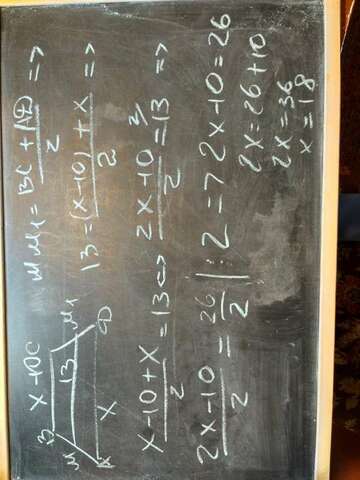 B x-10 C
M 13 M₁
A x D
MM₁ = (BC + AD)/2 =>
13 = ((x-10) + x)/2 =>
(x-10+x)/2 = 13 <=> (2x-10)/2 = 13 =>
(2x-10)/2 = 26/2 | : 2 => 2x-10 = 26
2x = 26+10
2x = 36
x = 18